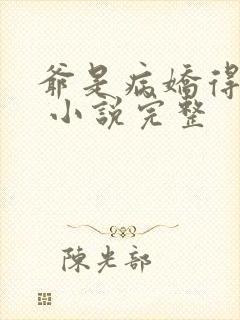 爺是病嬌得
小說完整
陳光部